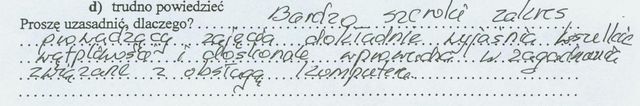 d) trudno powiedzieć
Proszę uzasadnić, dlaczego? Bardzo szeroki zakres
prowadząca zajęcia dokładnie wyjaśnia wszelkie
wątpliwości i doskonale wprowadza w zagadnienia
związane z obsługą komputera